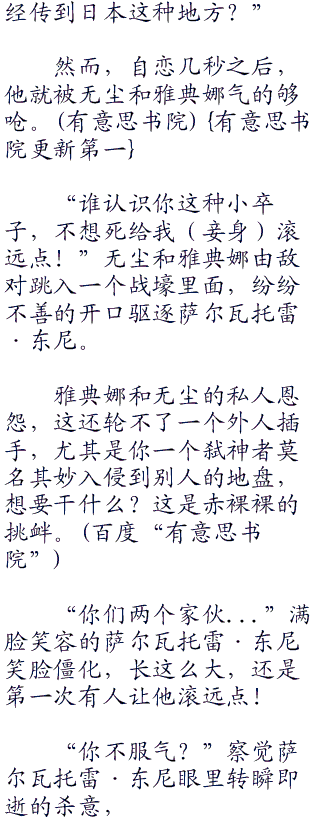 经传到日本这种地方？”
然而，自恋几秒之后，
他就被无尘和雅典娜气的够
呛。(有意思书院) {有意思书
院更新第一}
“谁认识你这种小卒
子，不想死给我（妾身）滚
远点！”无尘和雅典娜由敌
对跳入一个战壕里面，纷纷
不善的开口驱逐萨尔瓦托雷
·东尼。
雅典娜和无尘的私人恩
怨，这还轮不了一个外人插
手，尤其是你一个弑神者莫
名其妙入侵到别人的地盘，
想要干什么？这是赤裸裸的
挑衅。(百度“有意思书
院”)
“你们两个家伙...”满
脸笑容的萨尔瓦托雷·东尼
笑脸僵化，长这么大，还是
第一次有人让他滚远点！
“你不服气？”察觉萨
尔瓦托雷·东尼眼里转瞬即
逝的杀意，